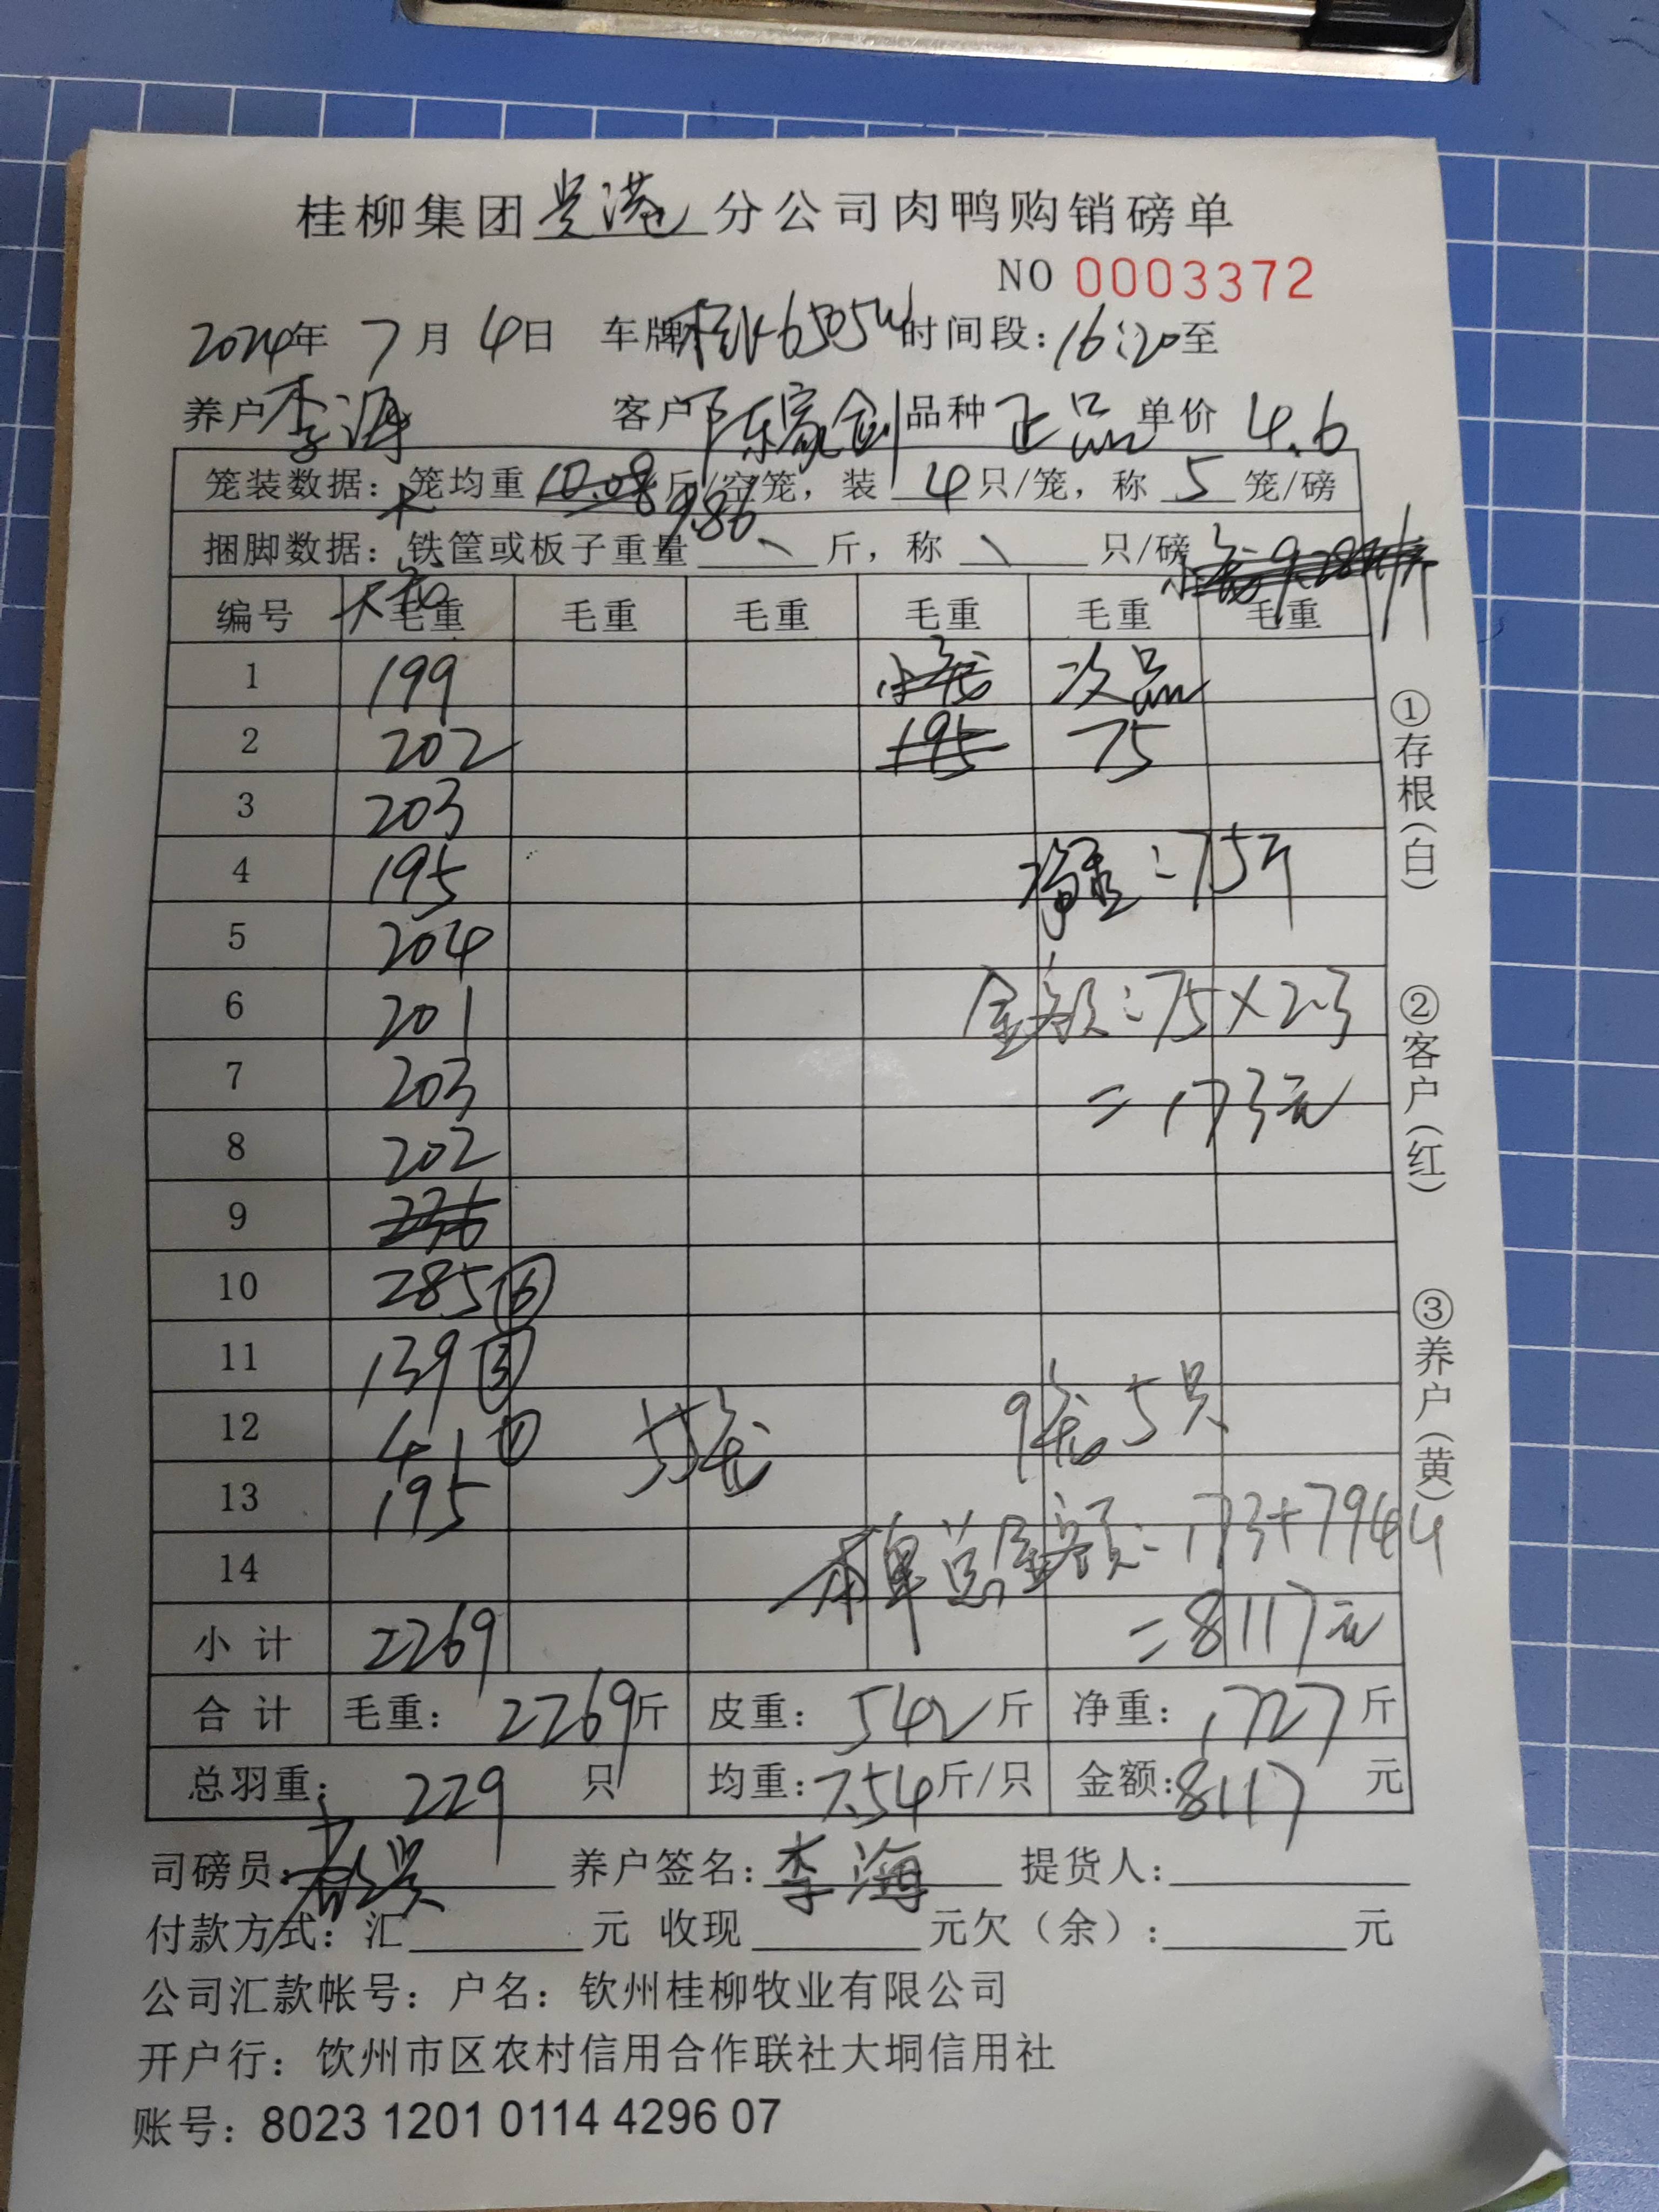 桂柳集团贵港分公司肉鸭购销磅单
NO 0003372
2024年 7月 4日 车牌 6505W 时间段：16:20至
养户李海 客户陈家剑 品种 正品 单价 4.6
笼装数据：大笼均重 10.08 9.86 斤/空笼，装 4 只/笼，称 5 笼/磅
捆脚数据：铁筐或板子重量 \ 斤，称 \ 只/磅
编号 大笼 毛重 毛重 毛重 毛重 毛重 毛重
1 199 小笼 次品
2 202 195 75
3 203
4 195 净重：75斤
5 204
6 201 金额：75×2.3
7 203 =173元
8 202
9 236
10 285 ⑥
11 139 ③
12 41 ① 55笼 9笼5只
13 195
14 本单总金额：173+7944
小计 2269 =8117元
合计 毛重：2269斤 皮重：542斤 净重：1727斤
总羽重：229 只 均重：7.54斤/只 金额：8117 元
司磅员： 养户签名：李海 提货人：
付款方式：汇 元 收现 元欠（余）： 元
公司汇款帐号：户名：钦州桂柳牧业有限公司
开户行：饮州市区农村信用合作联社大垌信用社
账号：8023 1201 0114 4296 07
①存根（白）
②客户（红）
③养户（黄）